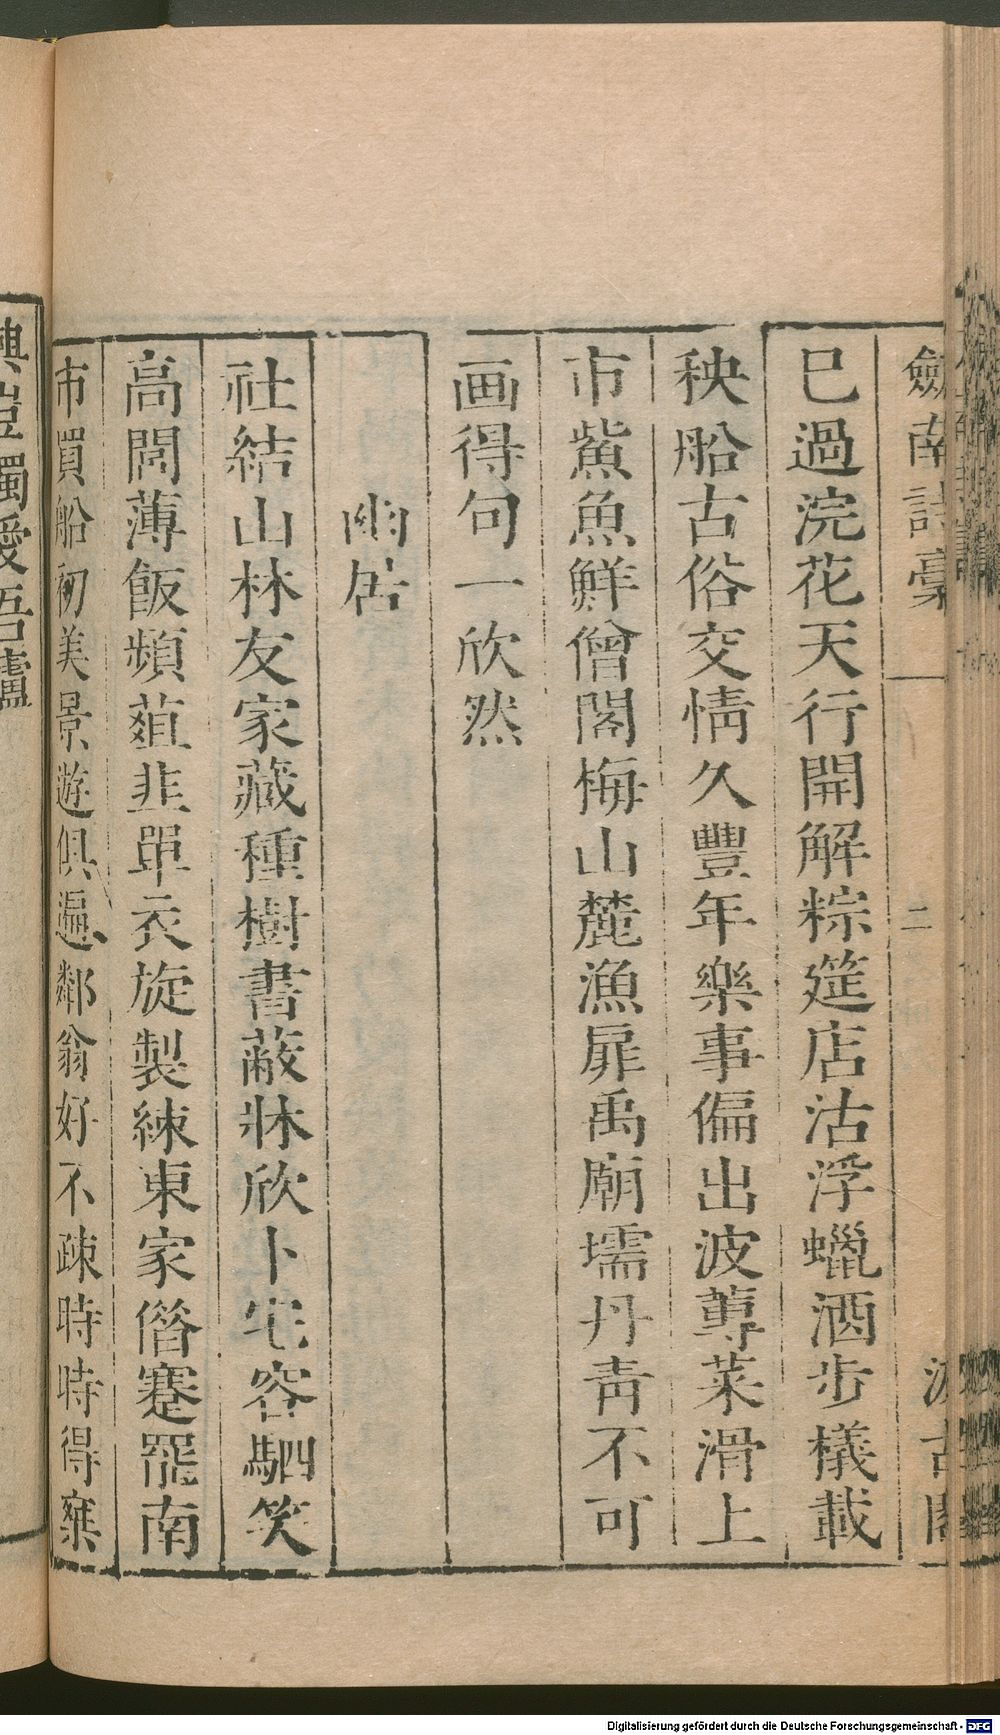 劒南詩稾
二
汲古閣
巳過浣花天行開解粽筵店沽浮蠟酒步檥載
秧船古俗交情久豐年樂事偏出波蓴菜滑上
市鮆魚鮮僧閣梅山麓漁扉禹廟壖丹青不可
画得句一欣然
幽居
社結山林友家藏種樹書蔽牀欣卜宅容駟笑
高閎薄飯頻葅韭單衣旋製練東家偺蹇罷南
市買船初美景遊俱遍鄰翁好不疎時時得棊
興豈獨愛吾廬
Digitalisierung gefördert durch die Deutsche Forschungsgemeinschaft - DFG